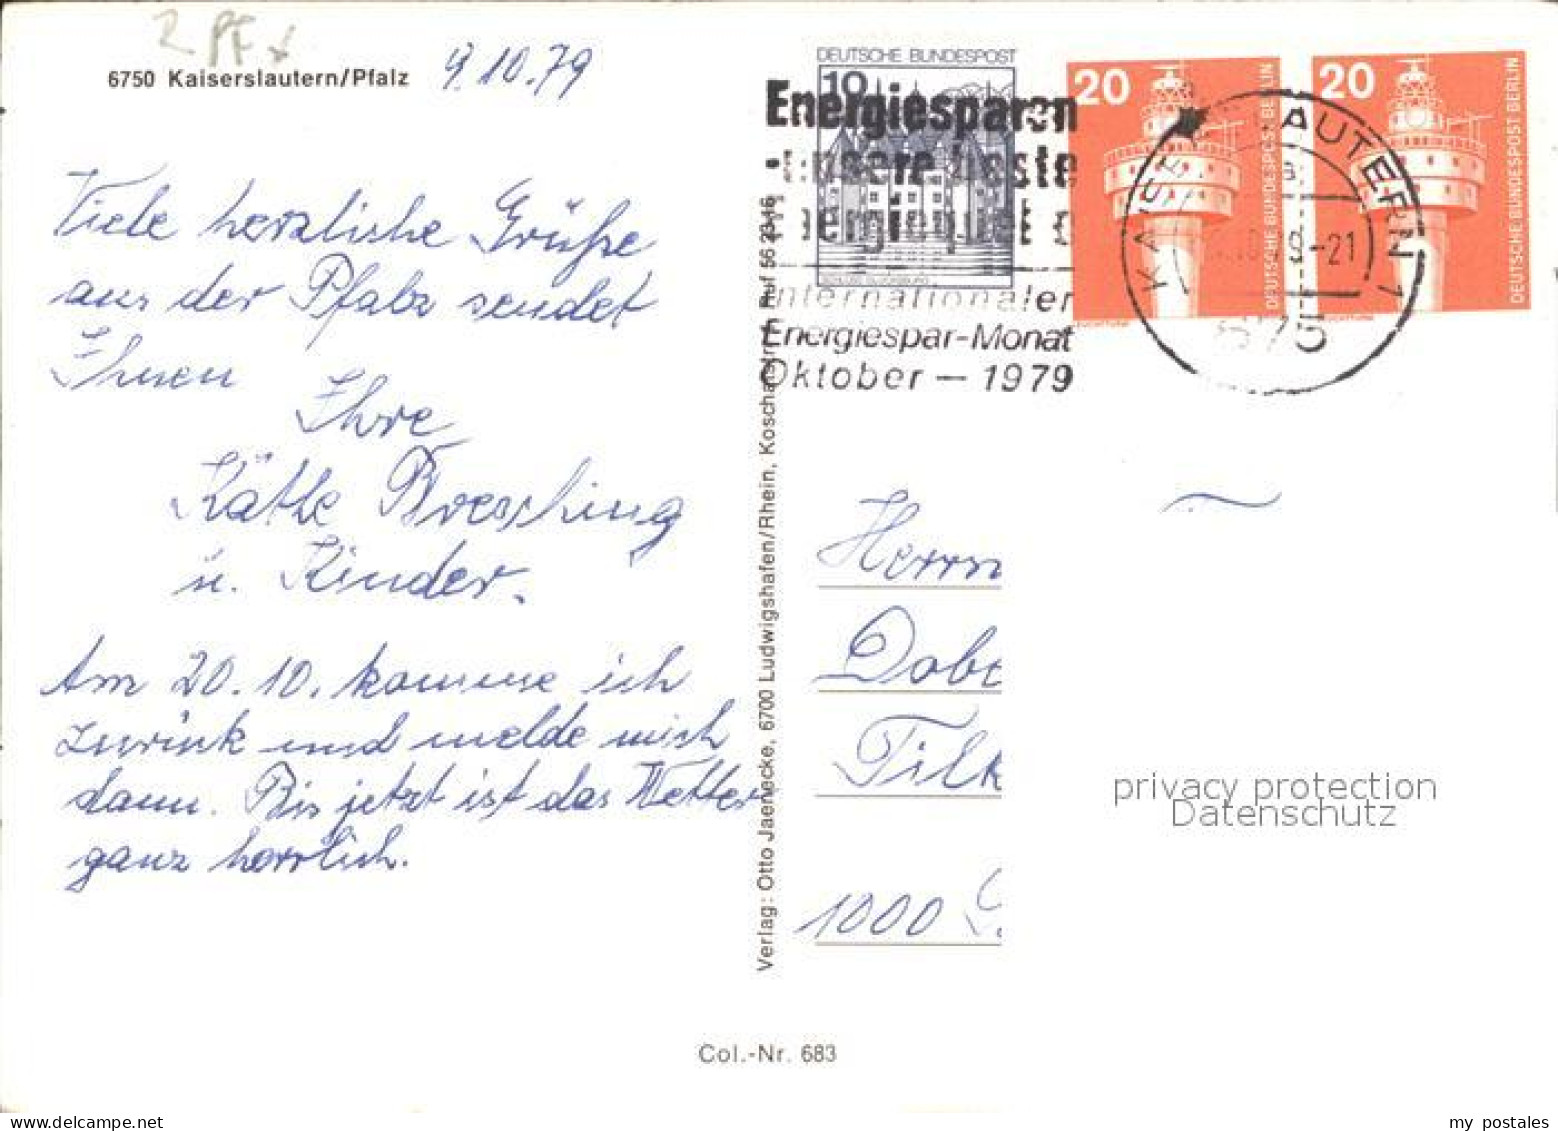 2 PF
6750 Kaiserslautern/Pfalz
9.10.79
Viele herzliche Grüße
aus der Pfalz sendet
Ihnen
Ihre
Käthe
u. Kinder.
Am 20.10. komme ich
zurück und melde mich
dann. Bis jetzt ist das Wetter
ganz herrlich.
Verlag: Otto Jaenecke, 6700 Ludwigshafen/Rhein, Koschatstr. Ruf 56 23 16
Col.-Nr. 683
DEUTSCHE BUNDESPOST
10
20
DEUTSCHE BUNDESPOST BERLIN
20
DEUTSCHE BUNDESPOST BERLIN
Energiesparen
-unsere beste
Energiequelle
Internationaler
Energiespar-Monat
Oktober — 1979
KAISERSLAUTERN 1
-21
675
Herrn
Dobe
Tilk
1000
privacy protection
Datenschutz
my postales